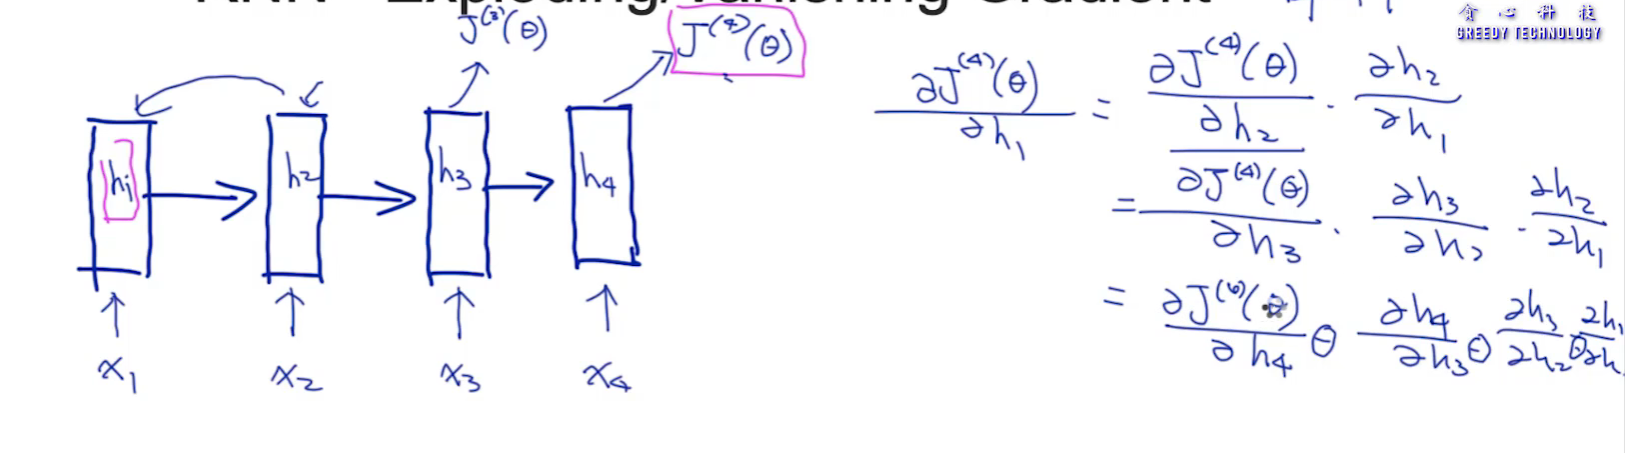 RNN - Exploding/Vanishing Gradient
贪心科技
GREEDY TECHNOLOGY
J⁽³⁾(θ)
J⁽⁴⁾(θ)
h₁
h₂
h₃
h₄
x₁
x₂
x₃
x₄
∂J⁽⁴⁾(θ)/∂h₁ = ∂J⁽⁴⁾(θ)/∂h₂ · ∂h₂/∂h₁
= ∂J⁽⁴⁾(θ)/∂h₃ · ∂h₃/∂h₂ · ∂h₂/∂h₁
= ∂J⁽⁴⁾(θ)/∂h₄ ⊙ ∂h₄/∂h₃ ⊙ ∂h₃/∂h₂ ⊙